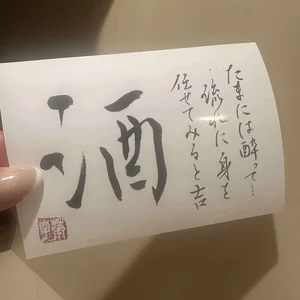 たまには酔って…
…流れに身を
任せてみると吉
酒